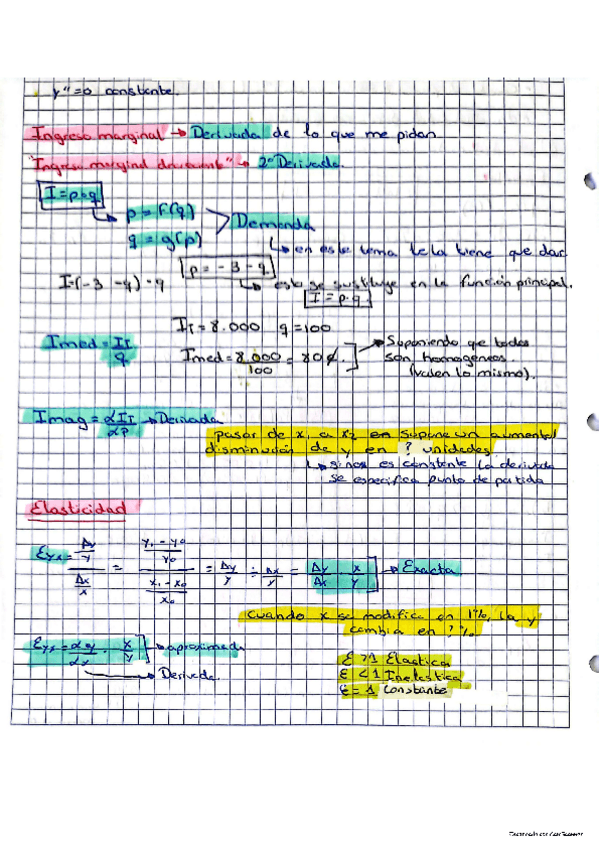 y"=0 constante.
Ingreso marginal → Derivada de lo que me pidan
"Ingreso marginal decreciente" → 2ª Derivada.
I=p·q
p = f(q)
q = g(p)
Demanda
en este tema te la tiene que dar
p = -3 - q
I=(-3 -q)·q
esto se sustituye en la función principal.
I = p·q
IT = 8.000 q=100
Imed = IT/q
Imed = 8.000/100 = 80€.
Suponiendo que todos
son homogéneos
(valen lo mismo).
Imag = αIT/αp → Derivada
pasar de x1 a x2 en supone un aumento/
disminución de y en ? unidades
si no es constante la derivada
se especifica punto de partida
Elasticidad
Eyx = Δy/y / Δx/x = y1 - y0/y0 / x1 - x0/x0 = Δy/y ÷ Δx/y = Δy/Δx x/y → Exacta
cuando x se modifica en 1%, la y
cambia en ? %
Eyx = αy/αx · x/y → aproximada
Derivada.
E >1 Elastica
E <1 Inelastica
E = 1 Constante